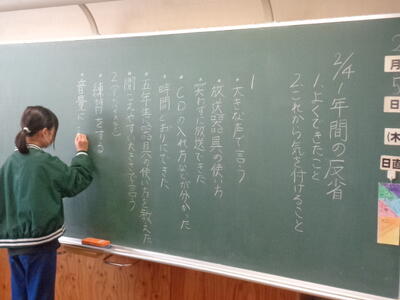 2/4 1年間の反省
1.よくできたこと
2.これから気を付けること
1
・大きな声で言う
・放送器具の使い方
・笑わずに放送できた
・CDの入れ方などが分かった
・時間どおりにできた
・五年生に器具の使い方を教えた
・聞こえやすい大きさで言う
2
・練習をする
・音量に
月
日
(木)
日直